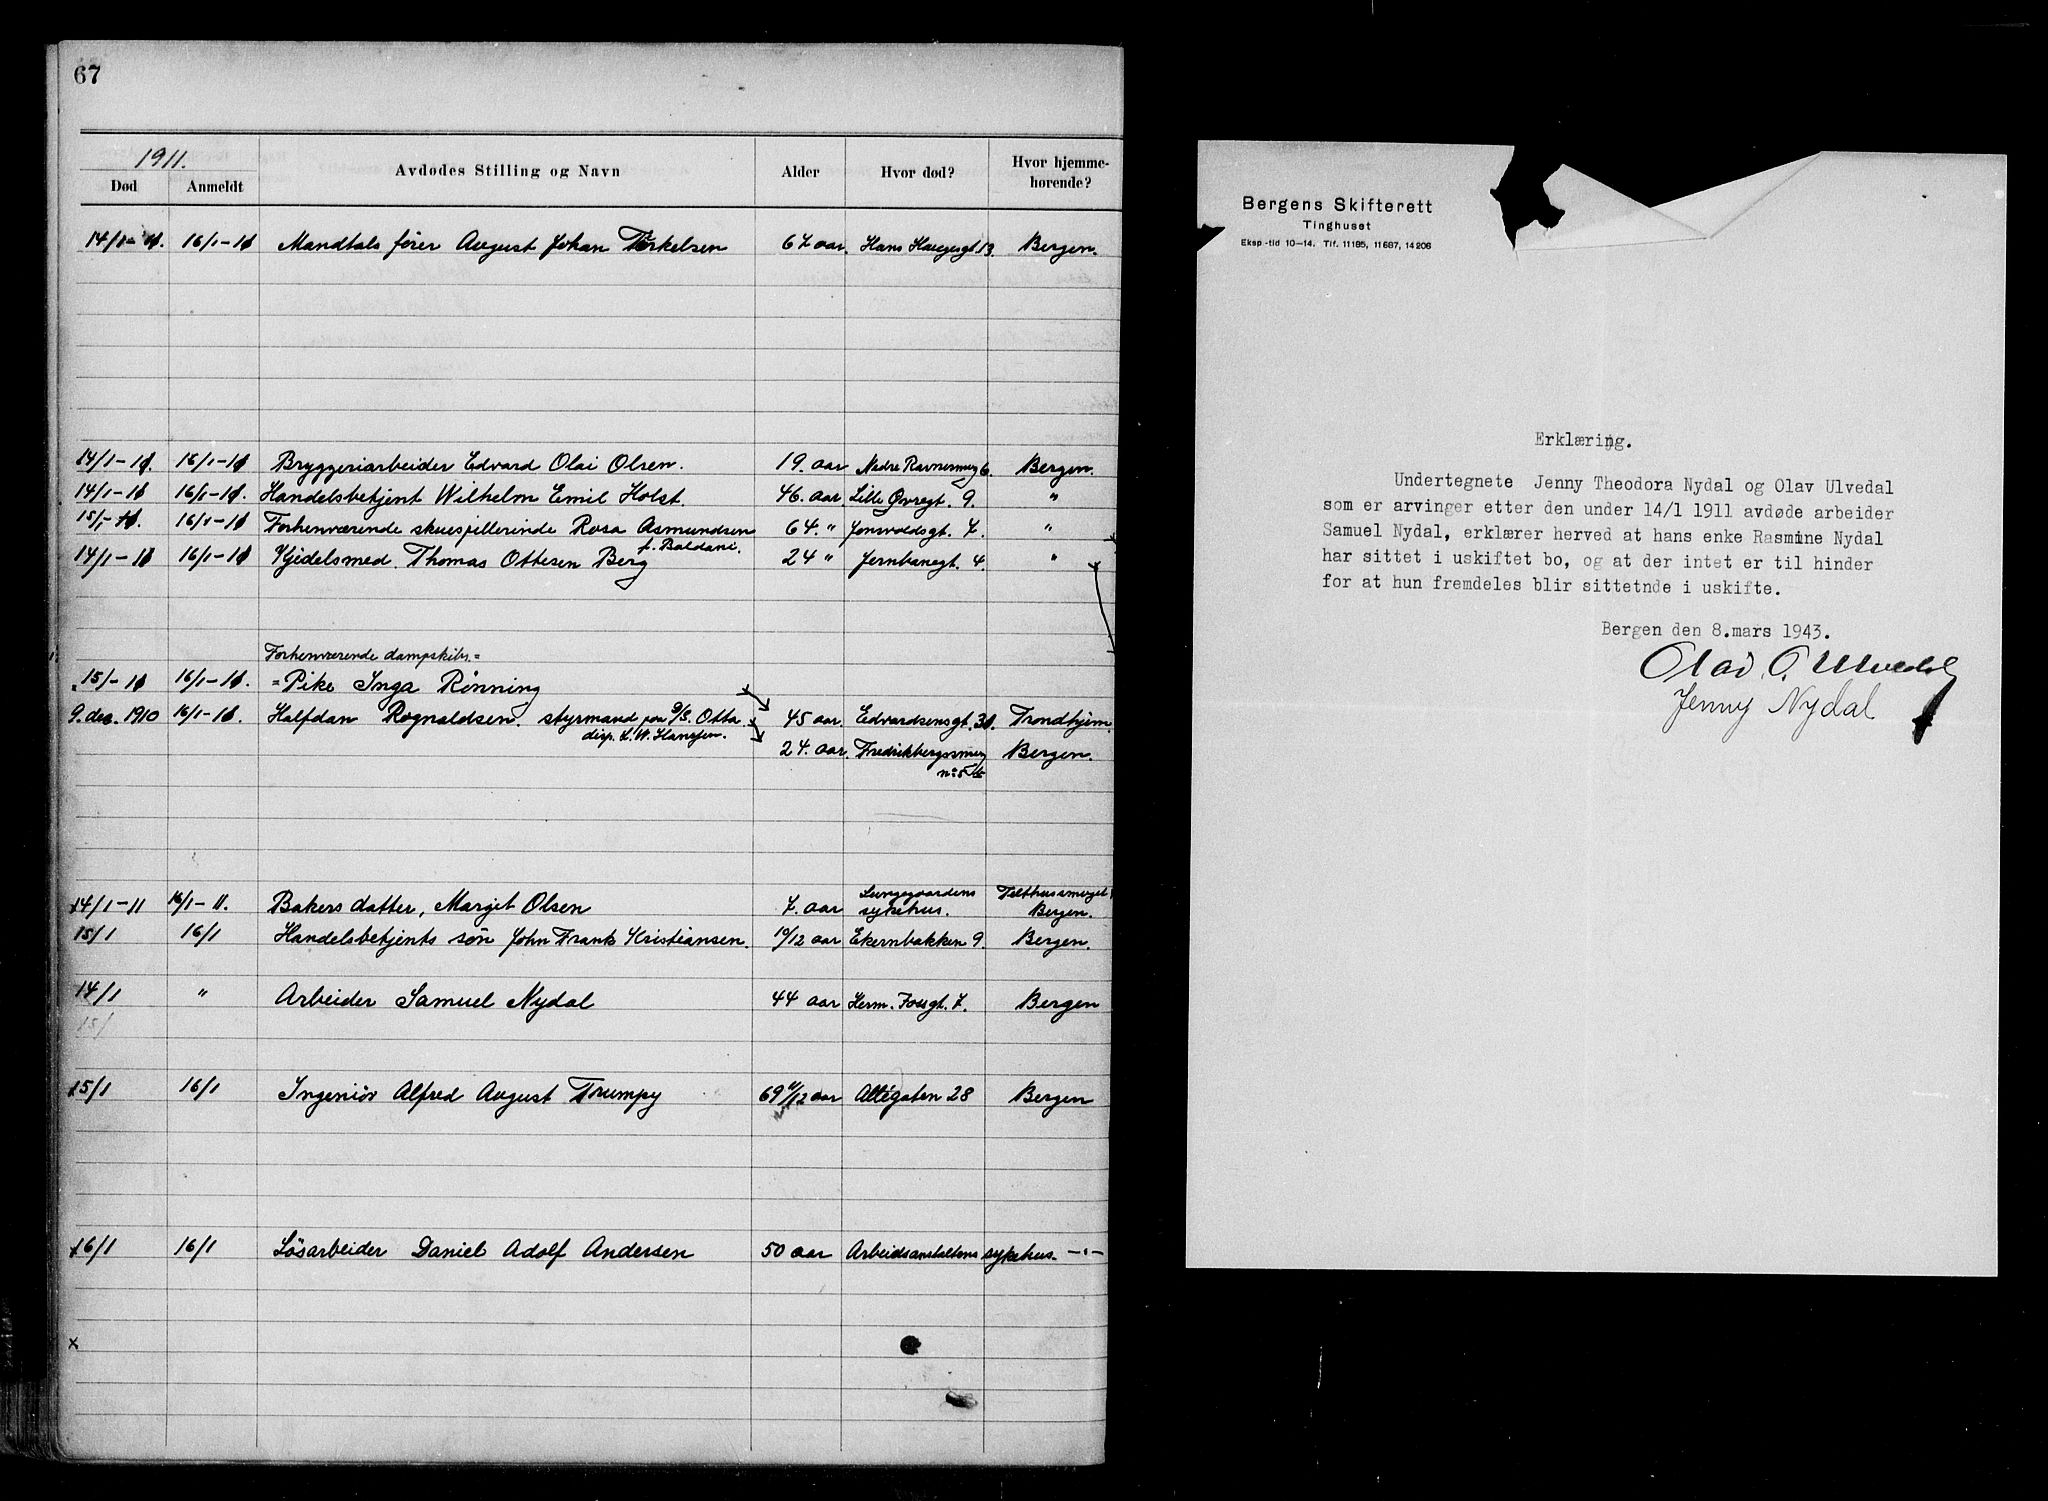 67
1911.
Død Anmeldt Avdødes Stilling og Navn Alder Hvor død? Hvor hjemme-
hørende?
14/1-11. 16/1-11 Mandtalsfører August Johan Terkelsen 67 aar. Hans Haugesgt. 13. Bergen.
14/1-11. 16/1-11 Bryggeriarbeider Edvard Olai Olsen. 19. aar Nedre Ravnsmug 6. Bergen.
14/1-11 16/1-11. Handelsbetjent Wilhelm Emil Holst. 46. aar. Lille Øvregt. 9. "
15/1-11. 16/1-11 Forhenværende skuespillerinde Rosa Asmundsen 64. " Jonsvoldsgt. 7. "
f. Baldani.
14/1-11 16/1-11 Kjedelsmed. Thomas Ottesen Berg 24 " Jernbanegt. 4. "
Forhenværende dampskibs.=
15/1-11 16/1-11. =Pike Inga Rønning
9. des. 1910 16/1-11. Halfdan Rognaldsen. styrmand paa D/S. Otta 45 aar. Edvardsensgt. 31. Trondhjem.
disp. L. W. Hansen. 24. aar. Fredriksbergsmug Bergen.
no 5
14/1-11 16/1-11. Bakers datter, Margit Olsen 7. aar Lungegaardens Telthussmuget
sykehus. Bergen.
15/1 16/1 Handelsbetjents søn John Frank Kristiansen. 10/12 aar Ekernbakken 9. Bergen.
14/1 " Arbeider Samuel Nydal 44 aar Herm. Fossgt. 7. Bergen
15/
15/1 16/1 Ingeniør Alfred August Trumpy 69 11/12 aar Allégaten 28 Bergen
16/1 16/1 Løsarbeider Daniel Adolf Andersen 50 aar Arbeidsanstaltens sykehus. -"-
x
Bergens Skifterett
Tinghuset
Eksp-tid 10-14. Tlf. 11185, 11687, 14206
Erklæring.
Undertegnete Jenny Theodora Nydal og Olav Ulvedal
som er arvinger etter den under 14/1 1911 avdøde arbeider
Samuel Nydal, erklærer herved at hans enke Rasmine Nydal
har sittet i uskiftet bo, og at der intet er til hinder
for at hun fremdeles blir sittetnde i uskifte.
Bergen den 8.mars 1943.
Olav O. Ulvedal
Jenny Nydal